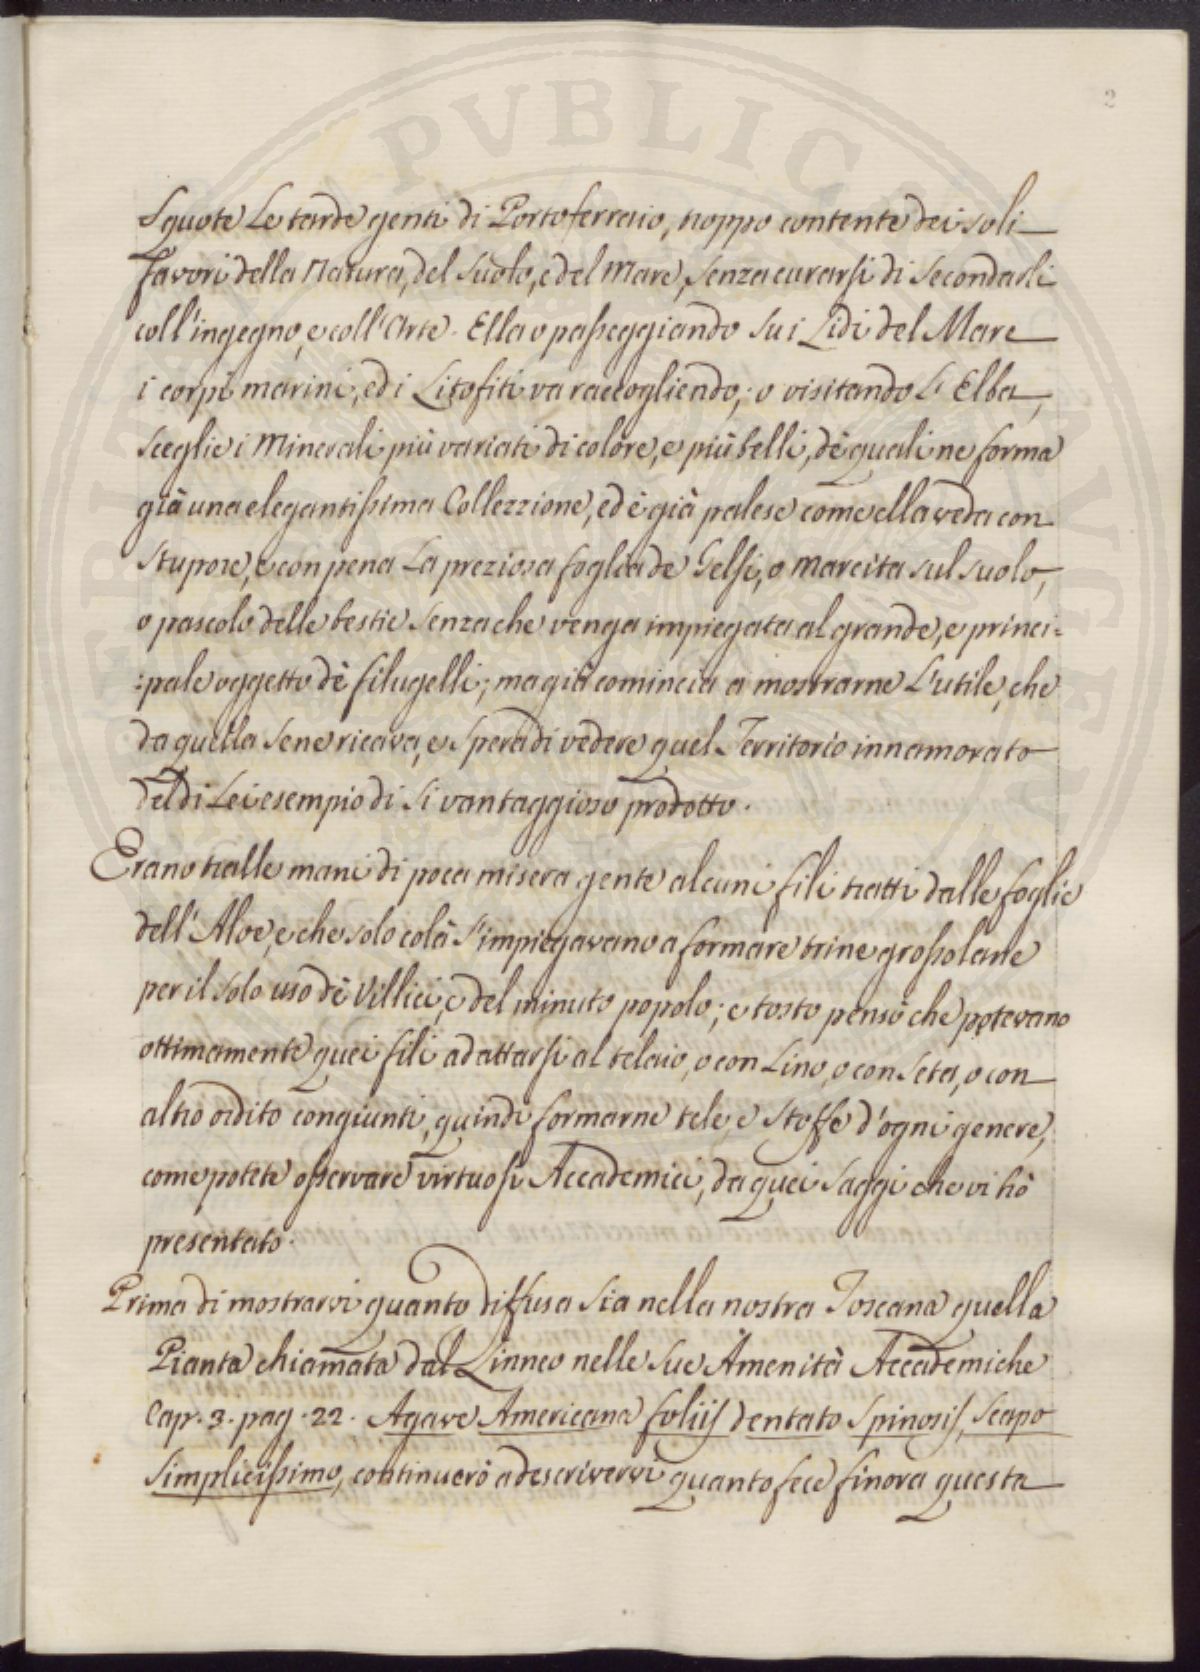 2
Squote Le tarde genti di Portoferraio, troppo contente dei soli
favori della Natura, del Suolo, e del Mare, senza curarsi di Secondarli
coll'ingegno, e coll'Arte. Ella o passeggiando Su i Lidi del Mare
i corpi marini, ed i Litofiti va raccogliendo; o visitando L'Elba,
Sceglie i Minerali più variati di colore, e più belli, dè quali ne forma
già una elegantissima Collezzione, ed è già palese come ella veda con
Stupore, e con pena La preziosa foglia de Gelsi, o marcita sul suolo,
o pascolo delle bestie Senza che venga impiegata al grande, e princi=
=pale oggetto dè filugelli; ma già comincia a mostrarne L'utile, che
da quella Sene ricava, e Spera di vedere quel Territorio innamorato
del di Lei esempio di Si vantaggioso prodotto.
Erano tralle mani di poca misera gente alcuni fili tratti dalle foglie
dell'Aloe, e che solo colà S'impiegavano a formare trine grossolane
per il solo uso dè Villici, e del minuto popolo; e tosto pensò che potevano
ottimamente quei fili adattarsi al telaio, o con Lino, o con Seta, o con
altro ordito congiunti, quindi formarne tele, e Stoffe d'ogni genere,
come potete osservare virtuosi Accademici, da quei Saggi che vi hò
presentato.
Prima di mostrarvi quanto diffusa Sia nella nostra Toscana quella
Pianta chiamata dal Linneo nelle Sue Amenità Accademiche
Cap. 3. pag. 22. Agave Americana foliis dentato Spinosis, Scapo
Simplicissimo, continuerò a descrivervi quanto fece finora questa
PVBLIC